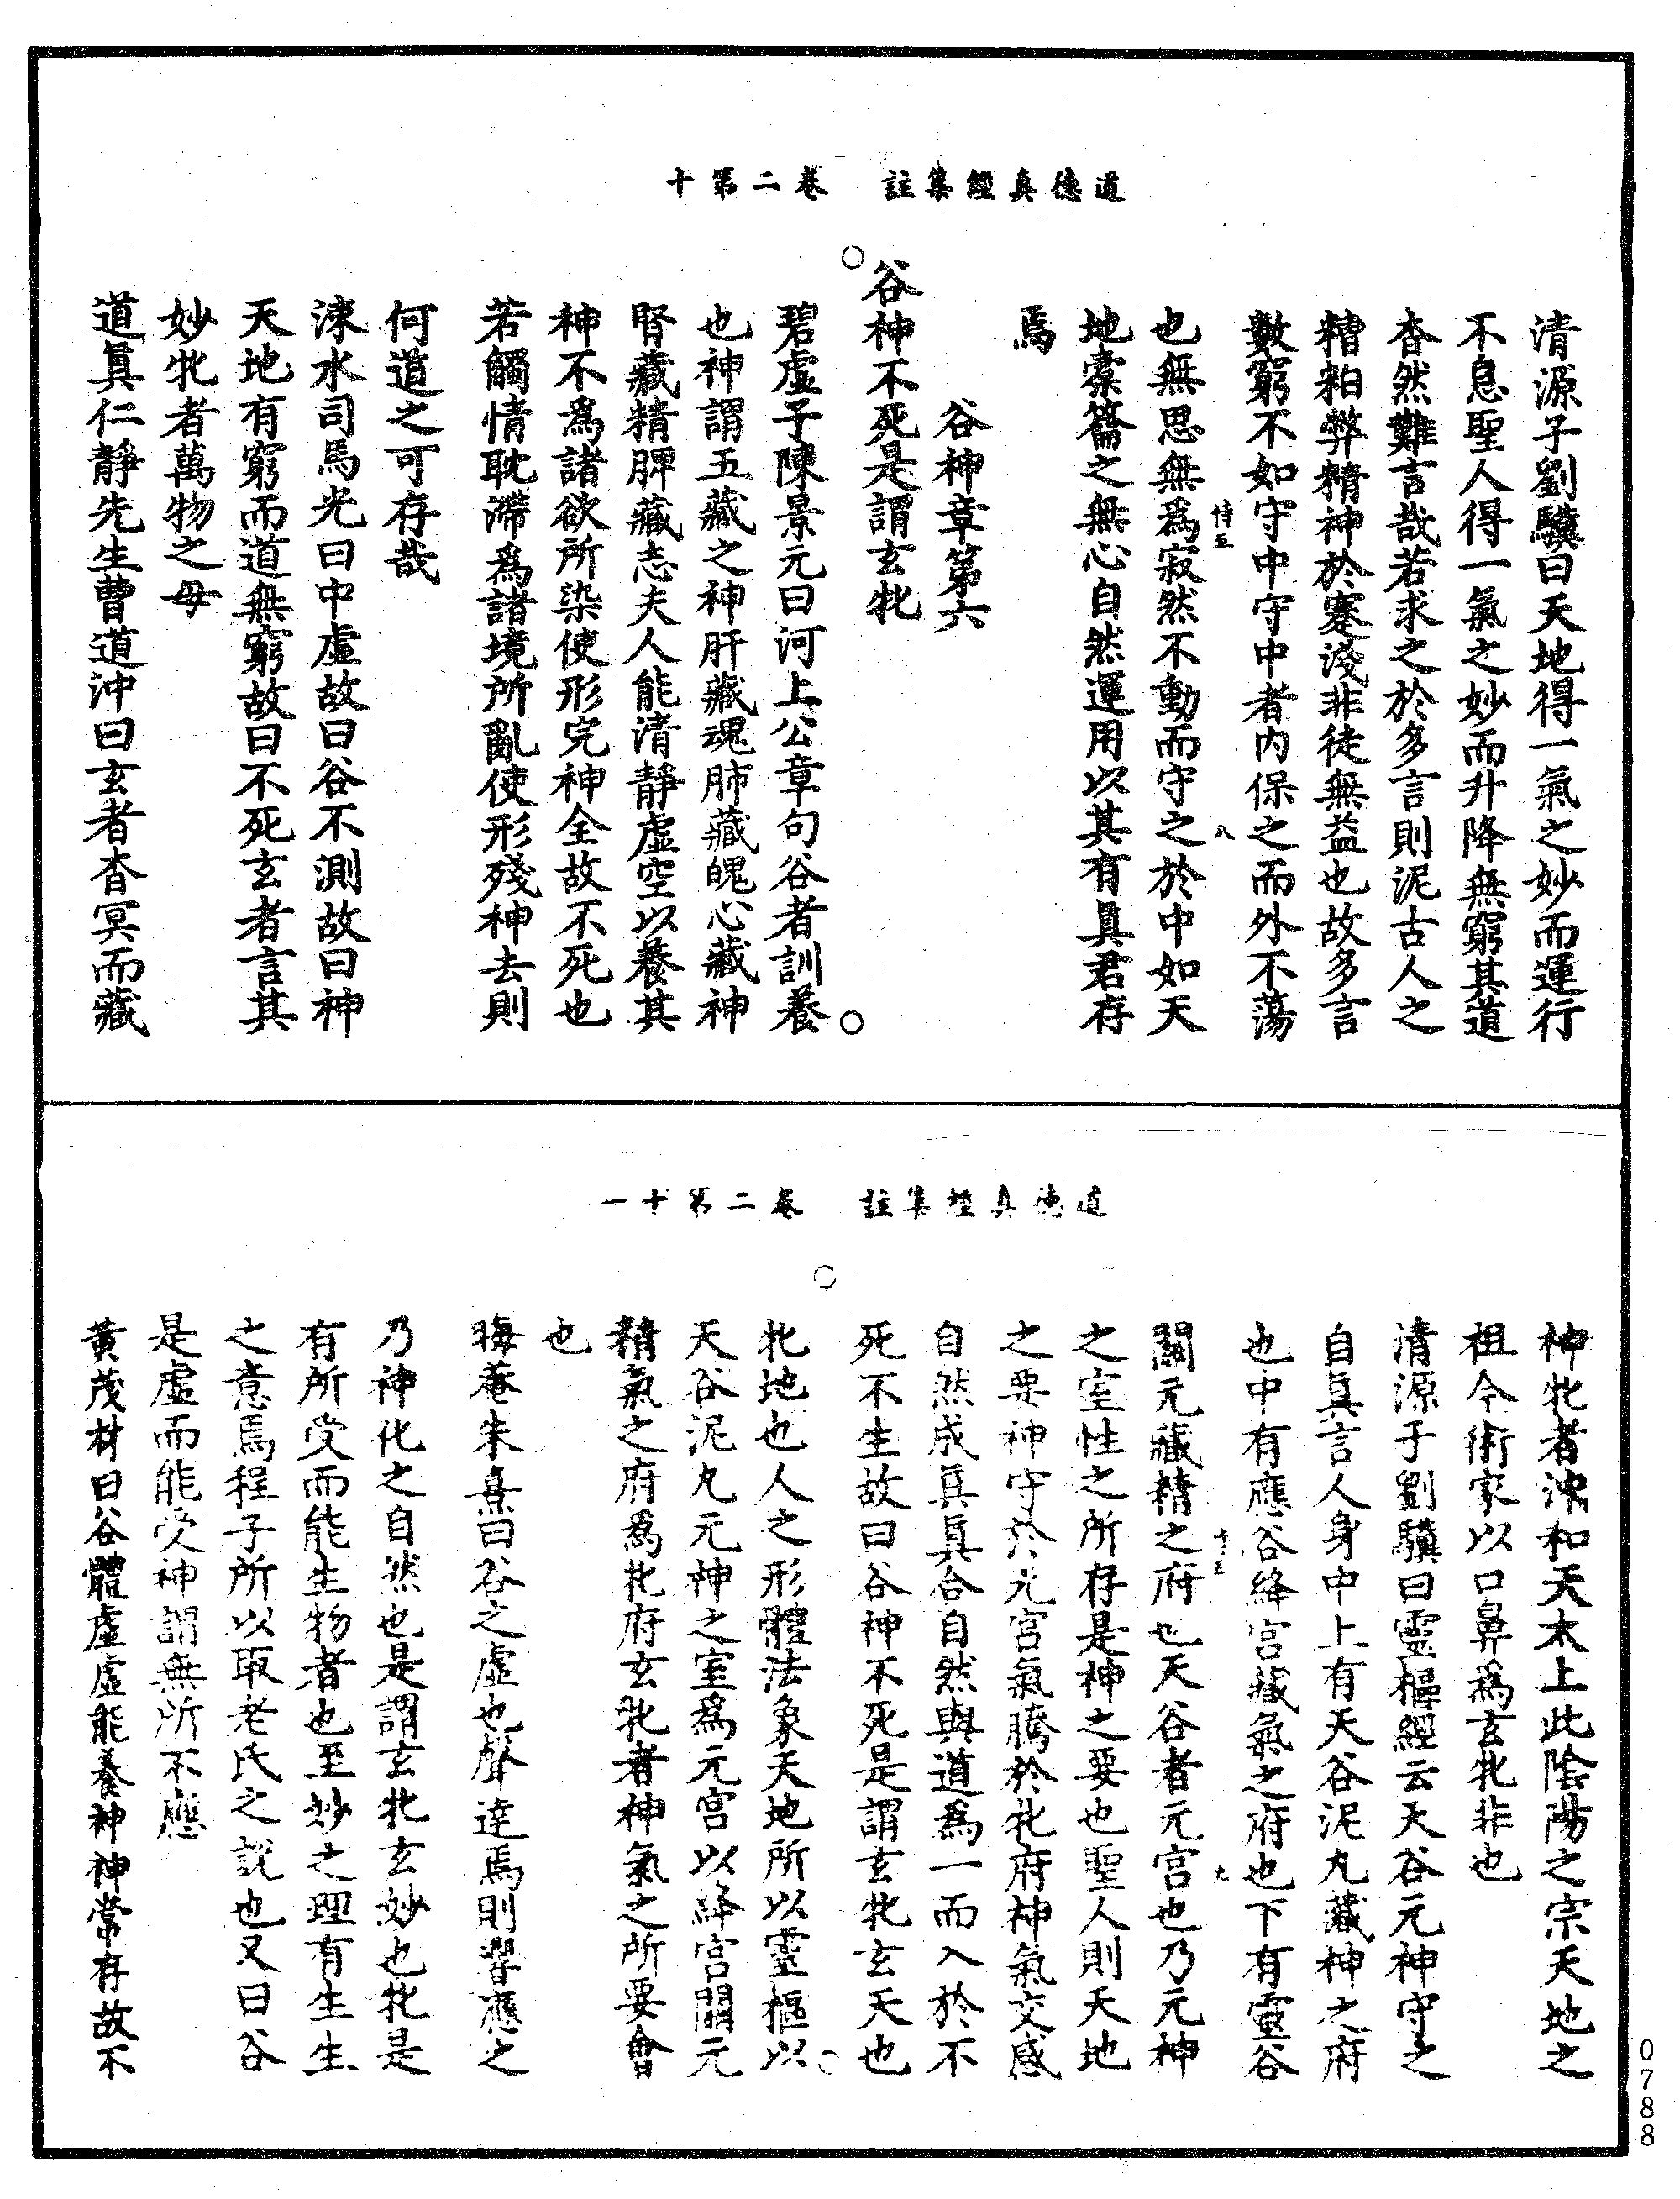 道德真經集註　卷二第十
清源子劉驥曰天地得一氣之妙而運行
不息聖人得一氣之妙而升降無窮其道
杳然難言哉若求之於多言則泥古人之
糟粕弊精神於蹇淺非徒無益也故多言
數窮不如守中守中者内保之而外不蕩
恃五　八
也無思無為寂然不動而守之於中如天
地橐籥之無心自然運用以其有真君存
焉
谷神章第六
谷神不死是謂玄牝
碧虛子陳景元曰河上公章句谷者訓養
也神謂五藏之神肝藏魂肺藏魄心藏神
腎藏精脾藏志夫人能清靜虛空以養其
神不為諸欲所染使形完神全故不死也
若觸情耽滯為諸境所亂使形殘神去則
何道之可存哉
涑水司馬光曰中虛故曰谷不測故曰神
天地有窮而道無窮故曰不死玄者言其
妙牝者萬物之母
道真仁靜先生曹道沖曰玄者杳冥而藏
道德真經集註　卷二第十一
神牝者沖和天太上此陰陽之宗天地之
祖今術家以口鼻為玄牝非也
清源子劉驥曰靈樞經云天谷元神守之
自真言人身中上有天谷泥丸藏神之府
也中有應谷絳宮藏氣之府也下有靈谷
恃五　九
關元藏精之府也天谷者元宮也乃元神
之室性之所存是神之要也聖人則天地
之要神守於元宮氣騰於牝府神氣交感
自然成真真合自然與道為一而入於不
死不生故曰谷神不死是謂玄牝玄天也
牝地也人之形體法象天地所以靈樞以
天谷泥丸元神之室為元宮以絳宮關元
精氣之府為牝府玄牝者神氣之所要會
也
晦菴朱熹曰谷之虛也聲達焉則響應之
乃神化之自然也是謂玄牝玄妙也牝是
有所受而能生物者也至妙之理有生生
之意焉程子所以取老氏之說也又曰谷
是虛而能受神謂無所不應
黃茂材曰谷體虛虛能養神神常存故不
0788